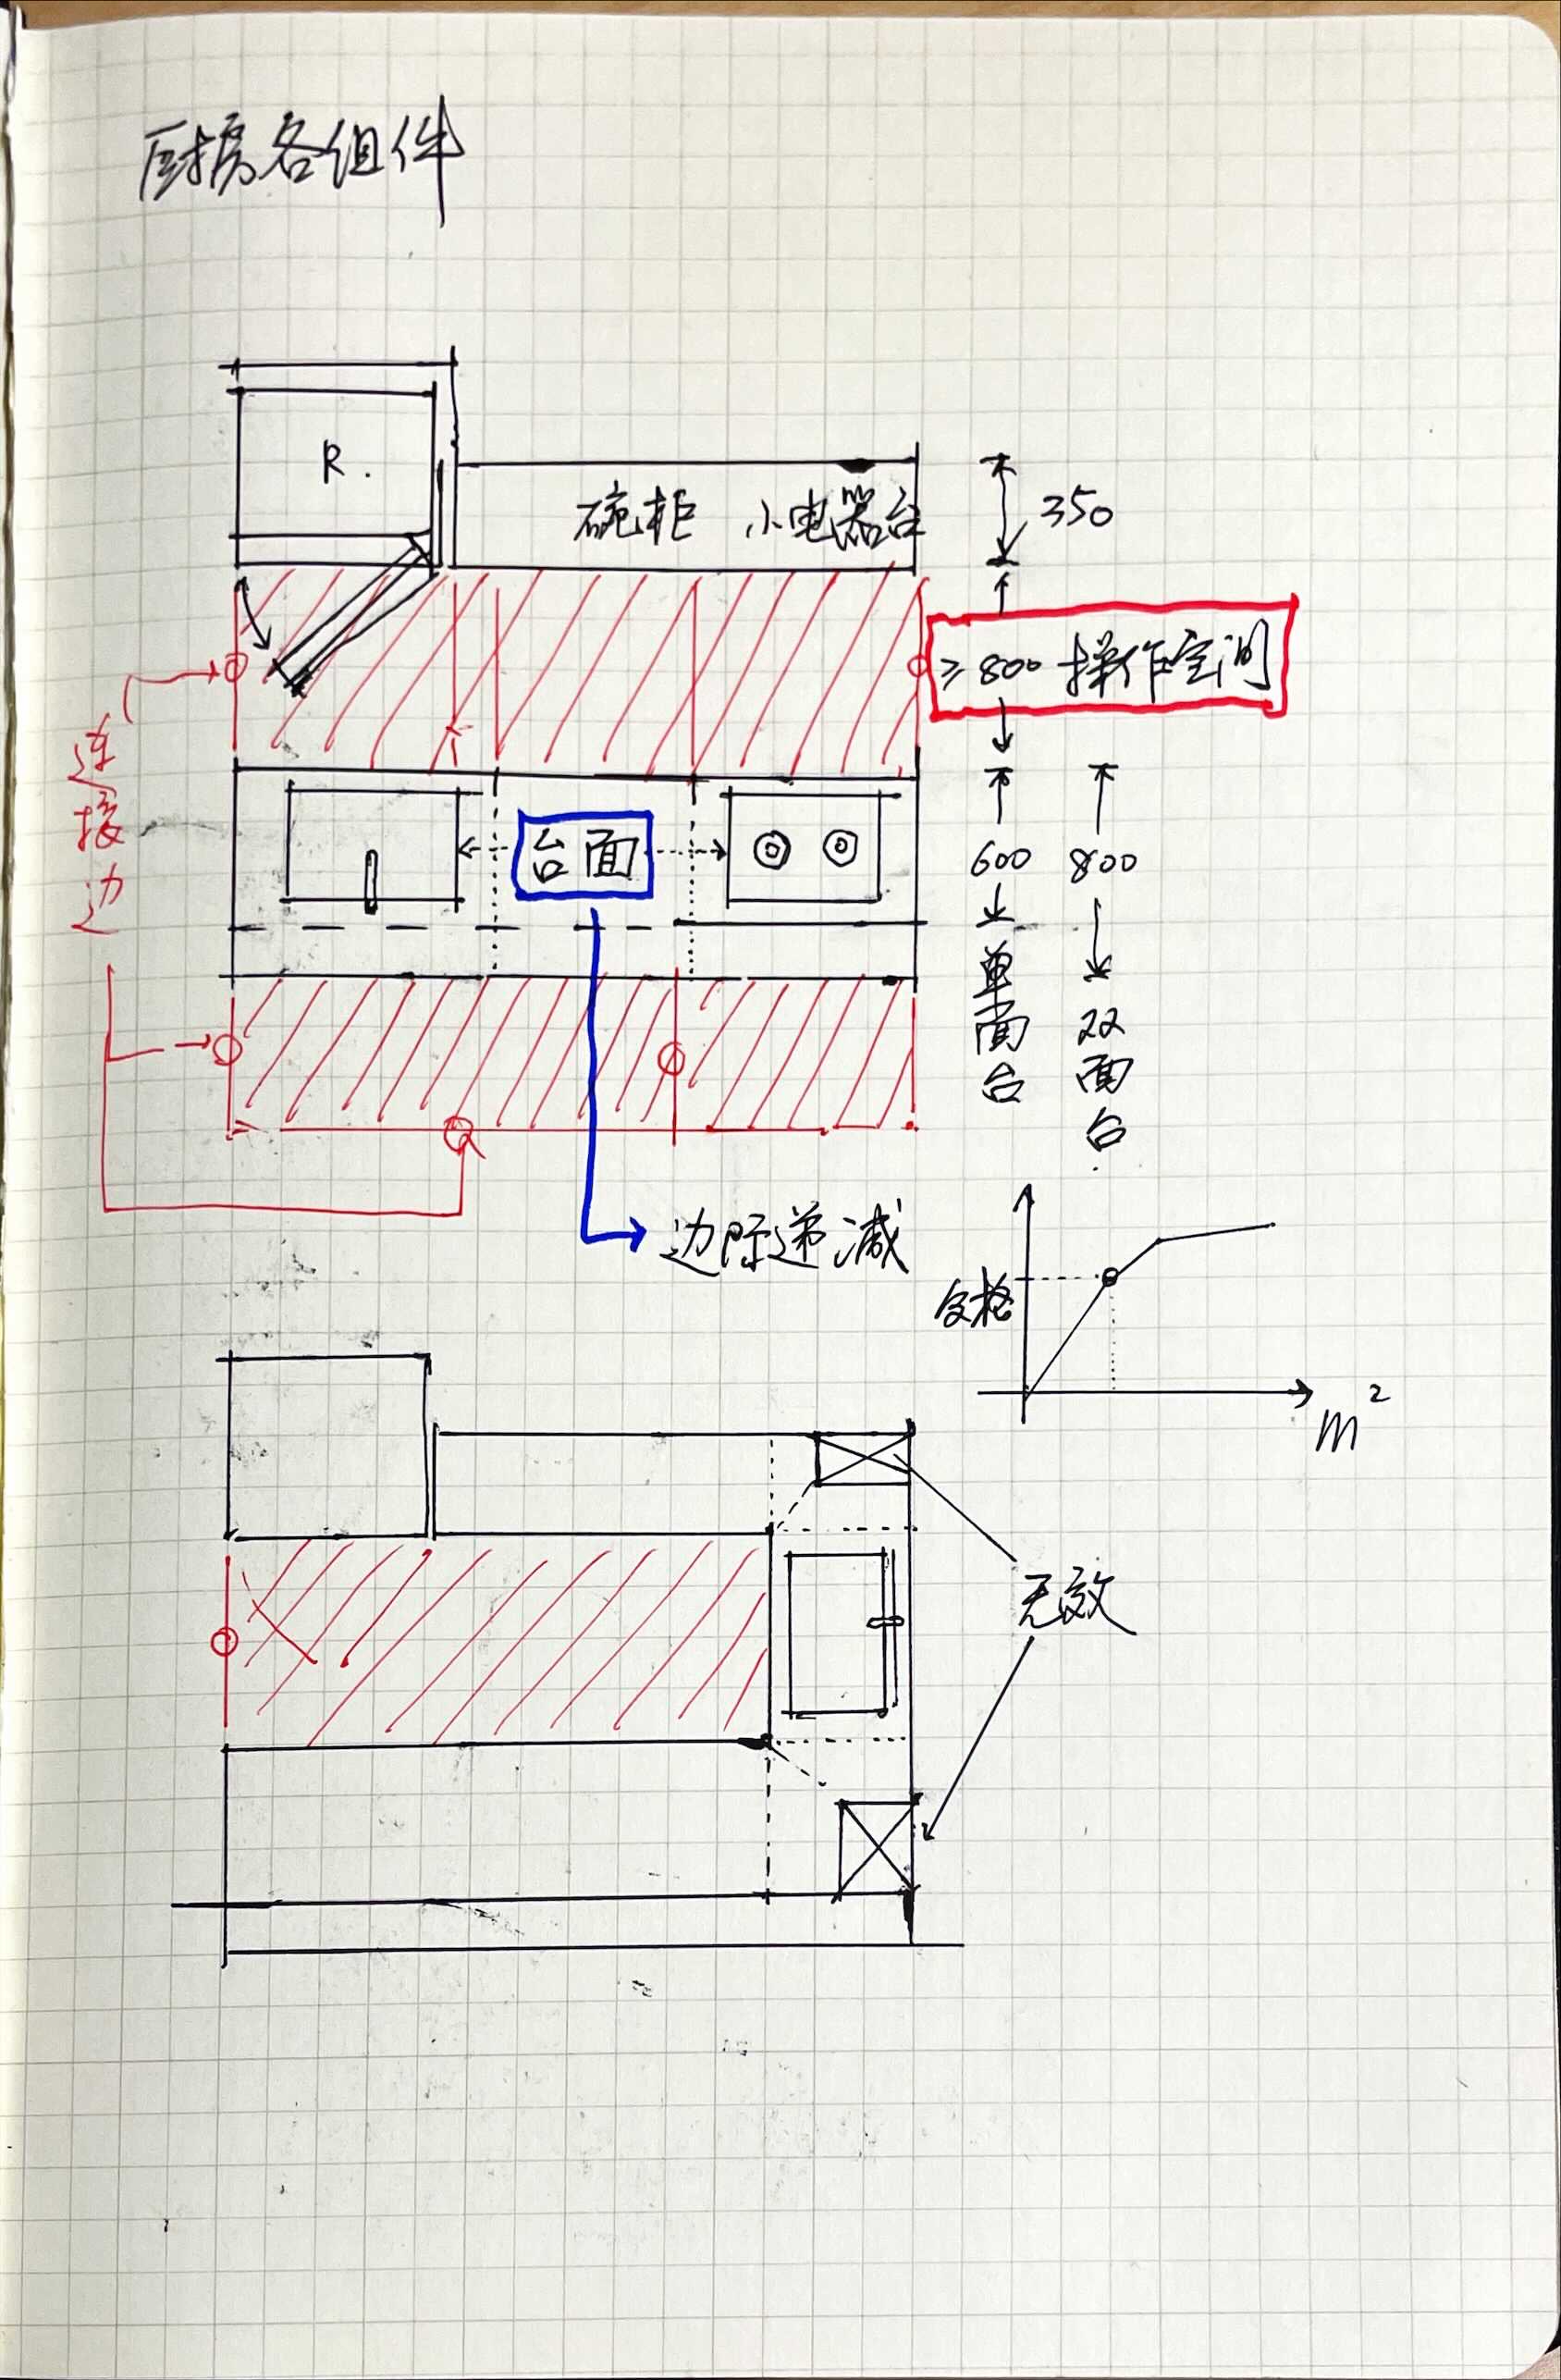 厨房各组件
R.
碗柜 小电器台
350
≥800 操作空间
连接边
台面
600
单面台
800
双面台
边际递减
合格
m²
无效